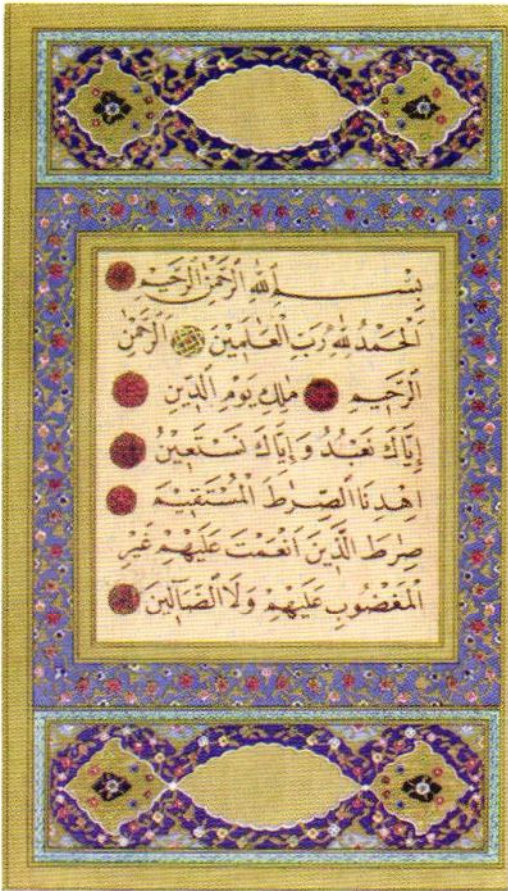 بِسْمِ اللهِ الرَّحْمٰنِ الرَّحِيْمِ
اَلْحَمْدُ لِلّٰهِ رَبِّ الْعَالَمِيْنَ اَلرَّحْمٰنِ
الرَّحِيمِ مٰلِكِ يَوْمِ الدِّينِ
إِيَّاكَ نَعْبُدُ وَإِيَّاكَ نَسْتَعِيْنُ
اِهْدِنَا الصِّرٰطَ الْمُسْتَقِيْمَ
صِرٰطَ الَّذِينَ اَنْعَمْتَ عَلَيْهِمْ غَيْرِ
الْمَغْضُوبِ عَلَيْهِمْ وَلَا الضَّآلِّينَ